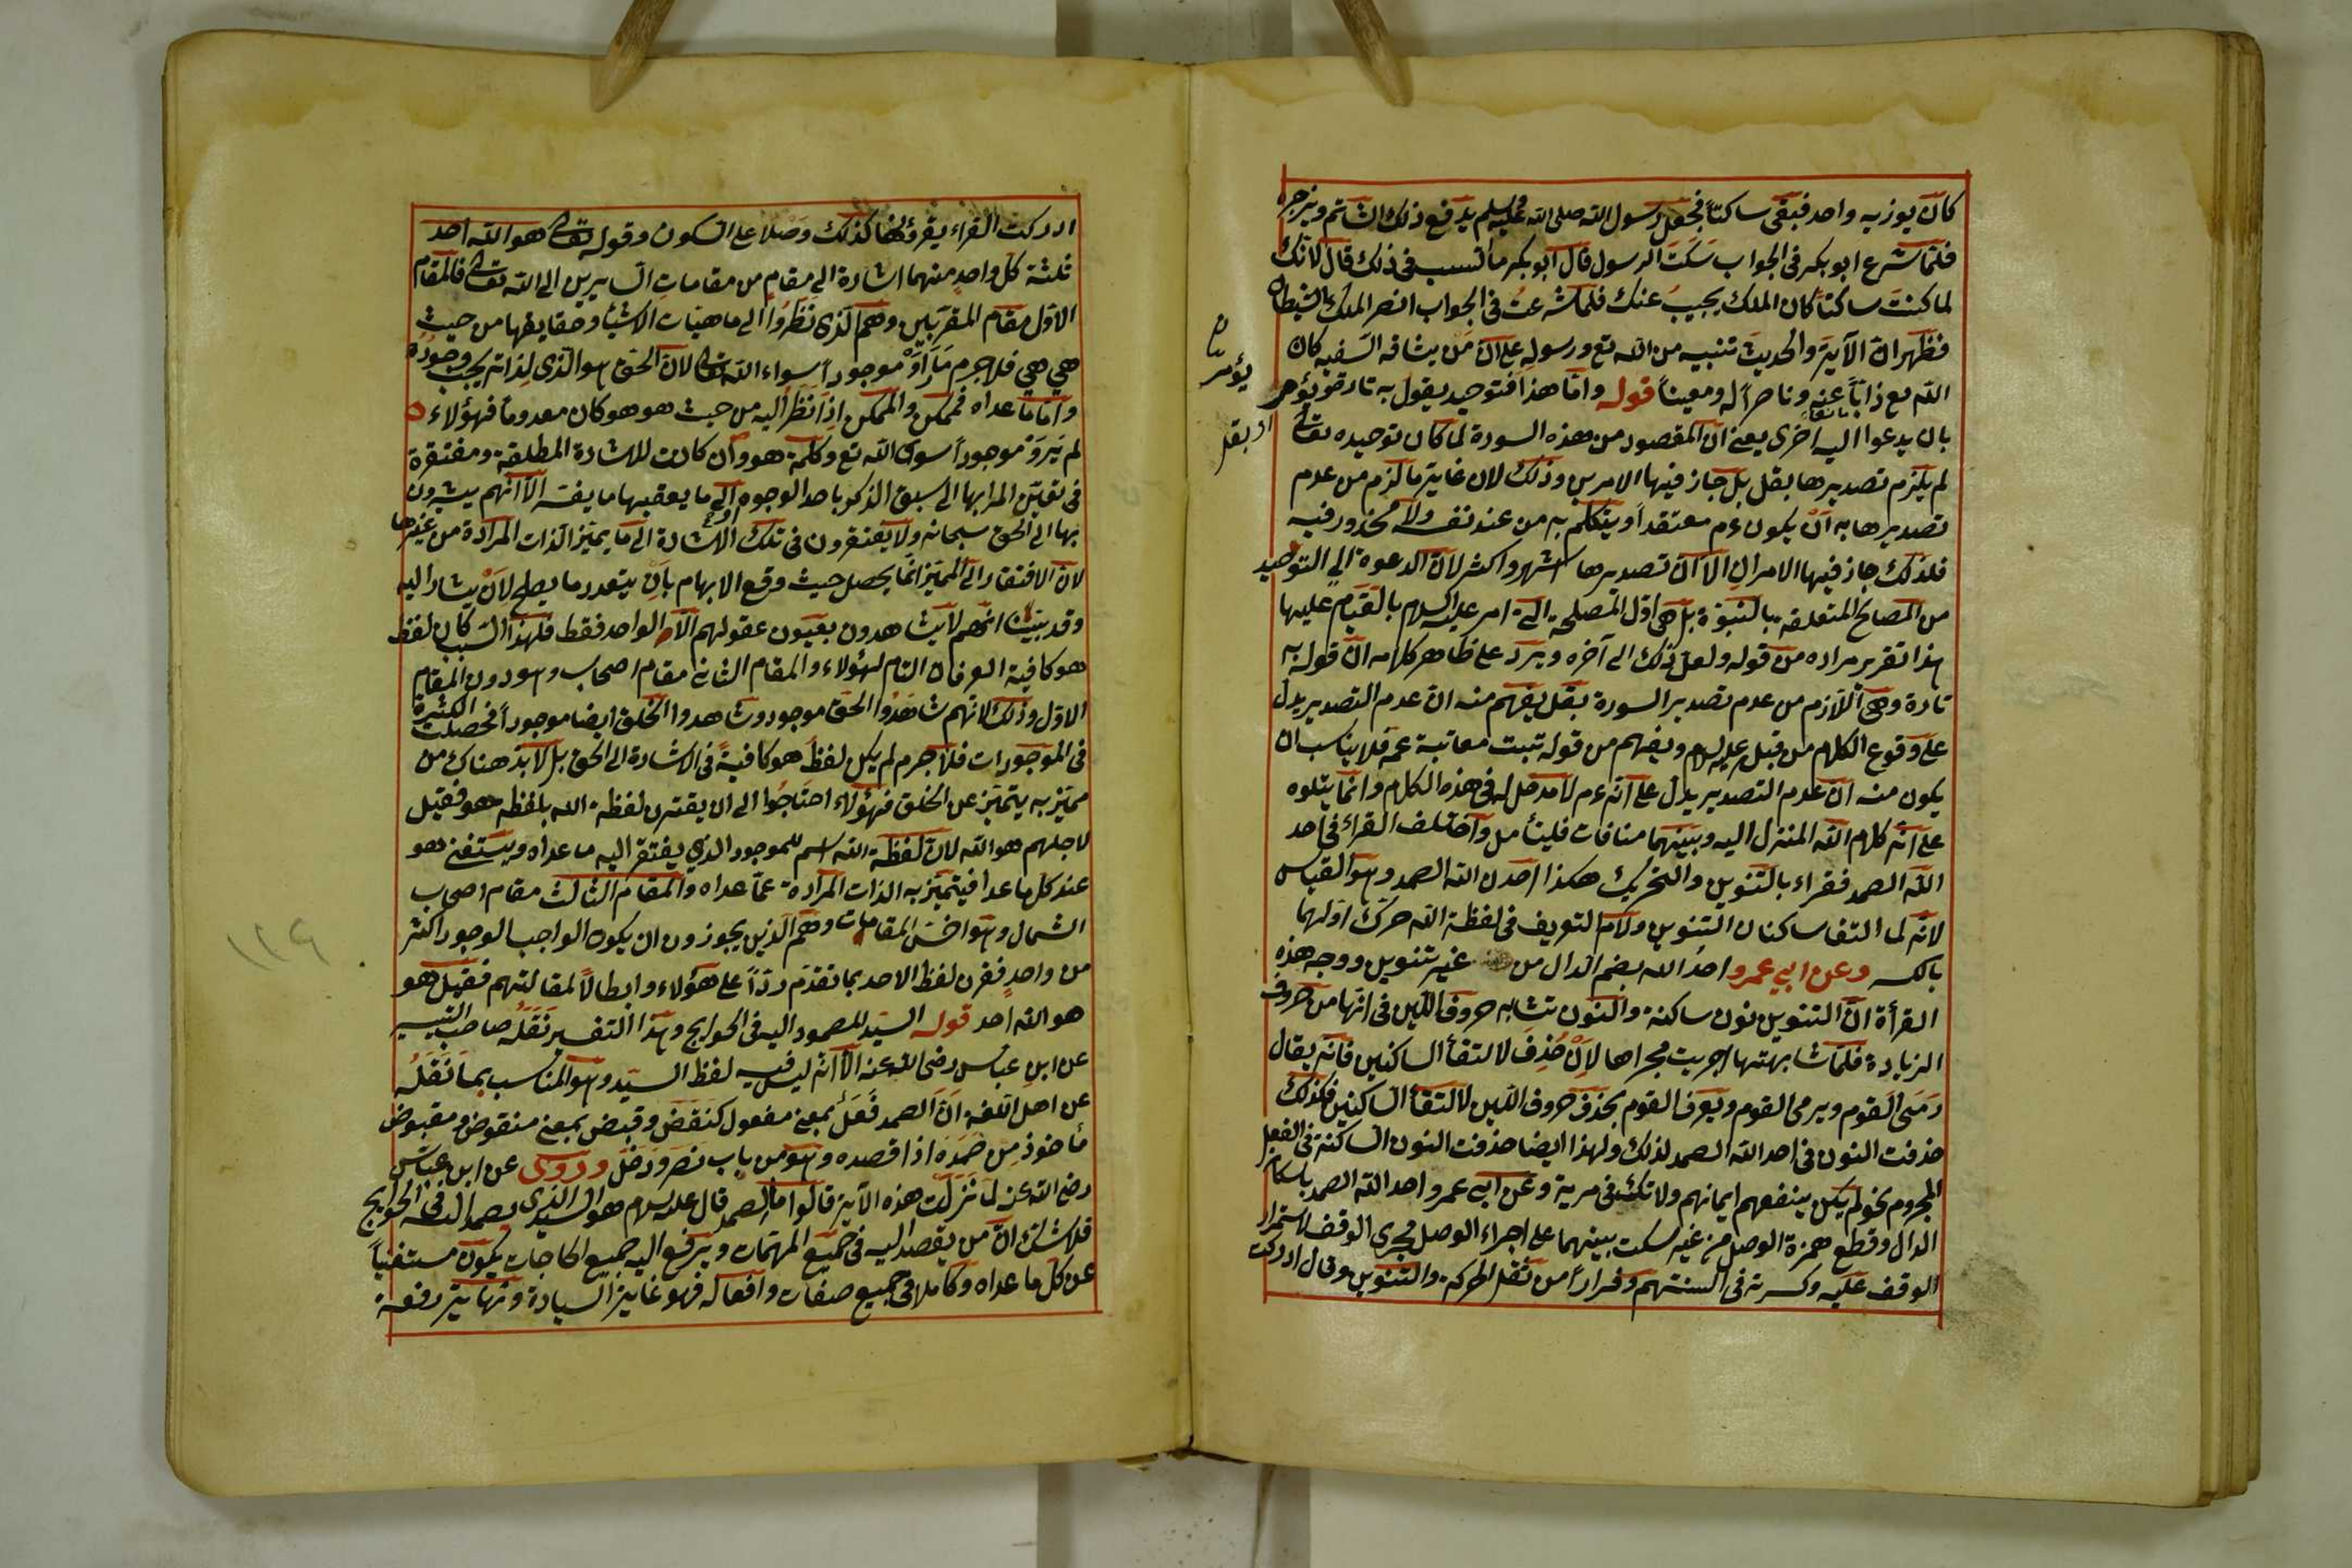 كان يوزيه واحد فبقى ساكتاً فجعل رسول الله صلى الله عليه وسلم يدفع ذلك الشاتم ويزجره
فلما شرع ابو بكر فى الجواب سَكَتَ الرسول قال ابو بكر ما السبب فى ذلك قال لانك
لما كنتَ ساكتاً كان الملك يجيبُ عنك فلما شرعتَ فى الجواب انصر الملك الشيطان
فظهر ان الآية والحديث تنبيه من الله تع ورسوله على ان مَن يشافه السفيه كان
الله مع ذاباً عنه وناصراً له ومعيناً قوله واما هذا فتوحيد يقول به تارة ويؤمر
بان يدعوا اليه اخرى يعنى ان المقصود من هذه السورة لما كان توحيده تعالى
لم يلزم تصديرها بقل بل جاز فيها الامرين وذلك لان غاية ما لزم من عدم
تصديرها به انْ يكون ءم معتقداً ويتكلم به من عند نفسه ولا محذور فيه
فلذلك جاز فيها الامران الا ان تصديرها اشهر واكثر لان الدعوة الى التوحيد
من المصالح المتعلقة بالنبوّة بل هى اوّل المصلحة التى امر عليه السلام بالقيام عليها
هذا تقرير مراده من قوله ولعل ذلك الى آخره ويرد على ظاهر كلامه ان قوله به
تارة وهى اللازم من عدم تصدير السورة بقل يفهم منه ان عدم التصدير يدل
على وقوع الكلام من قبل عليه السلام ويفهم من قوله تبت معاتبة عمه فلا يناسب ان
يكون منه ان عدم التصدير يدل على انه ءم لا مدخل له فى هذه الكلام وانما يتلوه
على انه كلام الله المنزل اليه وبينهما منافات فليتأمل واختلف القراء فى احد
الله الصمد فقراء بالتنوين والتحريك هكذا احدن الله الصمد وهو القياس
لانه لما التقا ساكنان التنوين ولام التعريف فى لفظة الله حرك اولهما
بالكسر وعن ابى عمرو احدُ الله بضم الدال من غير تنوين ووجه هذه
القرأة ان التنوين نون ساكنة والنون تشابه حروف اللين فى انها من حروف
الزيادة فلما شابهتها اجريت مجراها لاَنْ حُذِفَ لالتقأ الساكنين فانه يقال
رَمَى القوم ويرمى القوم ويعرف القوم بحذف حروف اللين لالتقأ الساكنين فكذلك
حذفت النون فى احد الله الصمد لذلك ولهذا ايضا حذفت النون الساكنة فى الفعل
المجروم نحو لم يكن ينفعهم ايمانهم ولا تك فى مرية وعن ابى عمرو احد الله الصمد باسكان
الدال وقطع همزة الوصل من غير سكت بينهما على اجراء الوصل مجرى الوقف لاستمرار
الوقف عليه وكسرته فى السنتهم وفراراً من ثقل الحركة والتنوين وقال ادركت
يؤمر
او بقل
ادركت القراء يقرؤنها كذلك وَصْلا على السكون وقوله تعالى هو الله احد
ثلثة كل واحد منهما اشارة الى مقام من مقامات السايرين الى الله تعالى فالمقام
الاوّل مقام المقربين وهم الذى نظرُوا الى ماهيات الاشيأ وحقايقها من حيث
هى هى فلا جرم مَا رَاَوْ موجوداً سواء الله تعالى لان الحق هو الذى لذاته يجب وجوده
واما ما عداه فممكن والممكن اذا نظر اليه من حيث هو هو كان معدوما فهؤلاء
لم يَرَوْ موجوداً سوى الله تع وكلمة هو وان كانت للاشارة المطلقة ومفتقرة
فى تعيّن المراد بها الى سبق الذكر باحد الوجوه الى ما يعقبها ما يفسّر الا انهم يشيرون
بها الى الحق سبحانه ولا يفتقرون فى تلك الاشارة الى ما يميّز الذات المرادة من غيرها
لان الافتقار الى المميّز انما يحصل حيث وقع الابهام بان يتعدد ما يصلح لاَنْ يشار اليه
وقد بينا انهم لا يشاهدون بعيون عقولهم الا الواحد فقط فلهذا السبب كان لفظ
هو كافية العرفان التام لهؤلاء والمقام الثانى مقام اصحاب وهو دون المقام
الاوّل وذلك لانهم شاهَدُوا الحق موجود وشاهدوا الخلق ايضا موجوداً فحصلت الكثرة
فى الموجودات فلا جرم لم يكن لفظُ هو كافيةً فى الاشارة الى الحق بل لا بد هناك من
مميّز به يتميّز عن الخلق فهؤلاء احتاجُوا الى ان يقترن لفظة الله بلفظة هو فقيل
لاجلهم هو الله لان لفظة الله اسم للموجود الذى يفتقر اليه ما عداه ويستغنى هو
عند كلما عدا فيتميّز به الذات المرادة عمّا عداه والمقام الثالث مقام اصحاب
الشمال وهو اخسّ المقامات وهم الذين يجوزون ان يكون الواجب الوجود اكثر
من واحدٍ فقرن لفظ الاحد بما تقدّم ردّاً على هؤلاء وابطالاً لمقالتهم فقيل هو
هو الله احد قوله السيّد المصمود اليه فى الحوايج وهذا التفسير نَقَلَهُ صاحب التيسير
عن ابن عباس رضى الله عنه الا انه ليس فيه لفظ السيّد وهو المناسب بما نَقَلَهُ
عن اهل اللغة ان الصمد فَعَلٌ بمعنى مفعول كنَقَضَ وقبض بمعنى منقوض ومقبوض
مأخوذ مِن صَمَدَه اذا قصده وهو من باب نصر ودخل وروى عن ابن عباس
رضى الله عنه لما نَزَلَت هذه الآية قالوا ما الصمد قال عليه السلام هو السيد الذى يصمد اليه فى الحوايج
فلا شك ان من يقصد اليه فى جميع المهمات ويرفع اليه جميع الحاجات يكون مستغنياً
عن كل ما عداه وكاملا فى جميع صفاته وافعاله فهو غاية السيادة ونهاية رفعة